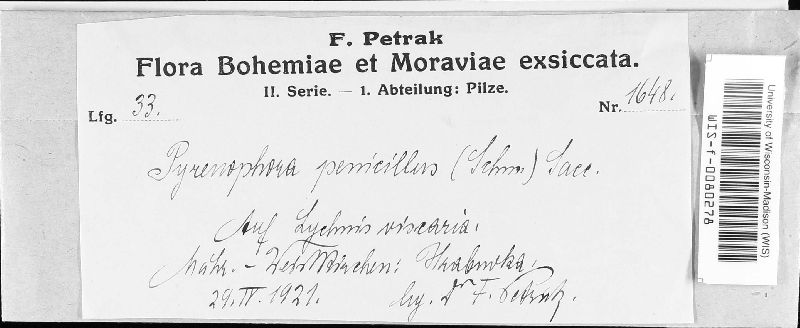 F. Petrak
Flora Bohemiae et Moraviae exsiccata.
II. Serie. — 1. Abteilung: Pilze.
Lfg. 33. Nr. 1648.
Pyrenophora penicillus (Schm.) Sacc.
Auf Lychnis viscaria.
Mähr.-Weisskirchen: Hrabuvka.
29. IV. 1921. leg. Dr F. Petrak.
University of Wisconsin-Madison (WIS)
WIS-f-0080278